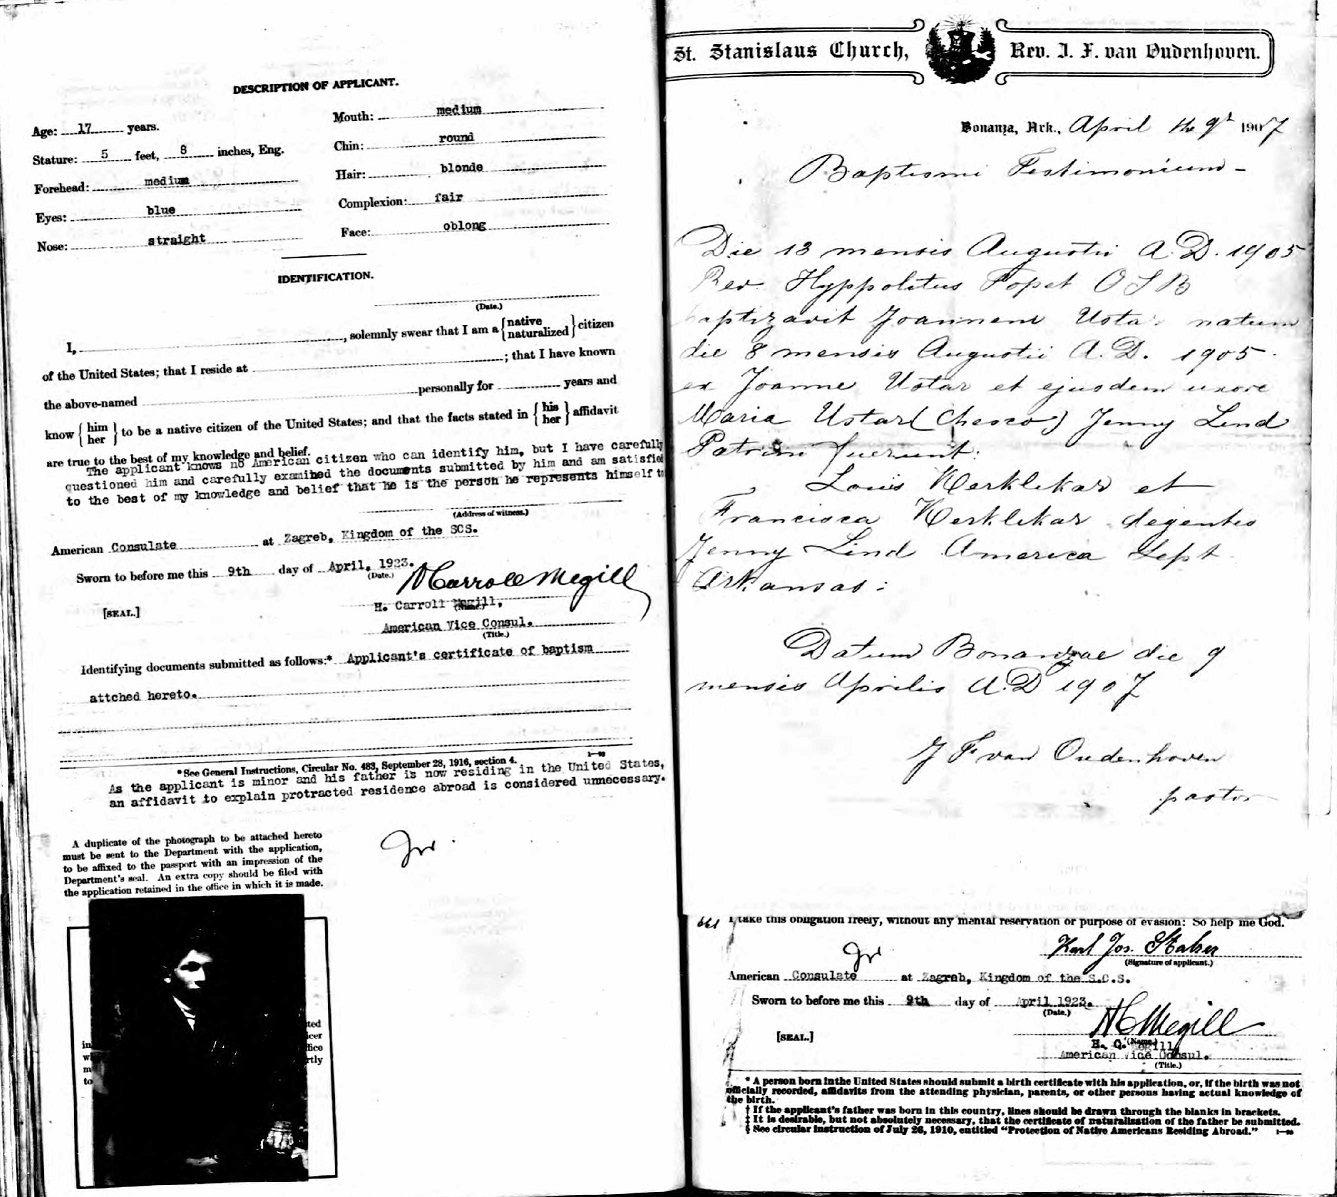 DESCRIPTION OF APPLICANT.
Age: 17 years.
Mouth: medium
Stature: 5 feet, 8 inches, Eng.
Chin: round
Forehead: medium
Hair: blonde
Eyes: blue
Complexion: fair
Nose: straight
Face: oblong
IDENTIFICATION.
(Date.)
I, , solemnly swear that I am a {native naturalized} citizen
of the United States; that I reside at ; that I have known
the above-named personally for years and
know {him her} to be a native citizen of the United States; and that the facts stated in {his her} affidavit
are true to the best of my knowledge and belief.
The applicant knows no American citizen who can identify him, but I have carefully
questioned him and carefully examined the documents submitted by him and am satisfied
to the best of my knowledge and belief that he is the person he represents himself to
(Address of witness.)
American Consulate at Zagreb, Kingdom of the SCS.
Sworn to before me this 9th day of April, 1923.
(Date.)
H Carroll Megill
[SEAL.]
H. Carroll Megill,
American Vice Consul.
(Title.)
Identifying documents submitted as follows:* Applicant's certificate of baptism
attched hereto.
*See General Instructions, Circular No. 483, September 28, 1916, section 4.
As the applicant is minor and his father is now residing in the United States,
an affidavit to explain protracted residence abroad is considered unnecessary.
A duplicate of the photograph to be attached hereto
must be sent to the Department with the application,
to be affixed to the passport with an impression of the
Department's seal. An extra copy should be filed with
the application retained in the office in which it is made.
St. Stanislaus Church, Rev. J. F. van Oudenhoven.
Bonanza, Ark., April the 9th 1907
Baptismi Testimonium -
Die 13 mensis Augustii A.D. 1905
Rev. Hyppolitus Topet OSB
baptizavit Joannem Ustar natum
die 8 mensis Augustii A.D. 1905.
ex Joanne Ustar et ejusdem uxore
Maria Ustar (Chesco) Jenny Lind
Patrini fuerunt:
Louis Kerklekar et
Francisca Kerklekar degentes
Jenny Lind America Sept
Arkansas:
Datum Bonanzae die 9
mensis Aprilis A.D 1907
J F van Oudenhoven
pastor
I take this obligation freely, without any mental reservation or purpose of evasion: So help me God.
(Signature of applicant.)
American Consulate at Zagreb, Kingdom of the S.C.S.
Sworn to before me this 9th day of April 1923.
(Date.)
H C Megill
[SEAL.]
(Name.)
American Vice Consul.
(Title.)
* A person born in the United States should submit a birth certificate with his application, or, if the birth was not
officially recorded, affidavits from the attending physician, parents, or other persons having actual knowledge of
the birth.
† If the applicant's father was born in this country, lines should be drawn through the blanks in brackets.
‡ It is desirable, but not absolutely necessary, that the certificate of naturalization of the father be submitted.
§ See circular instruction of July 26, 1910, entitled "Protection of Native Americans Residing Abroad."